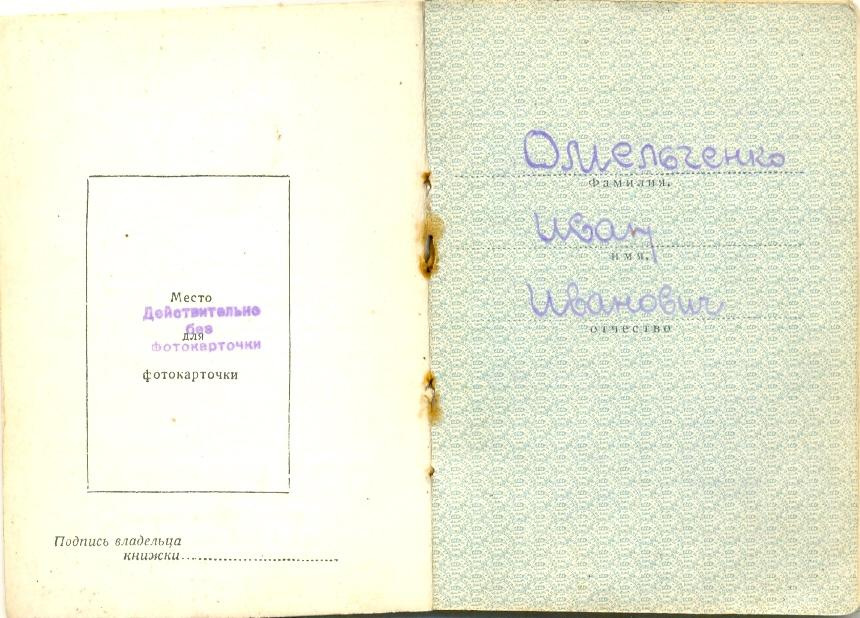 Место
Действительно
без
для
фотокарточки
фотокарточки
Подпись владельца
книжки
Омельченко
фамилия,
Иван
имя,
Иванович
отчество